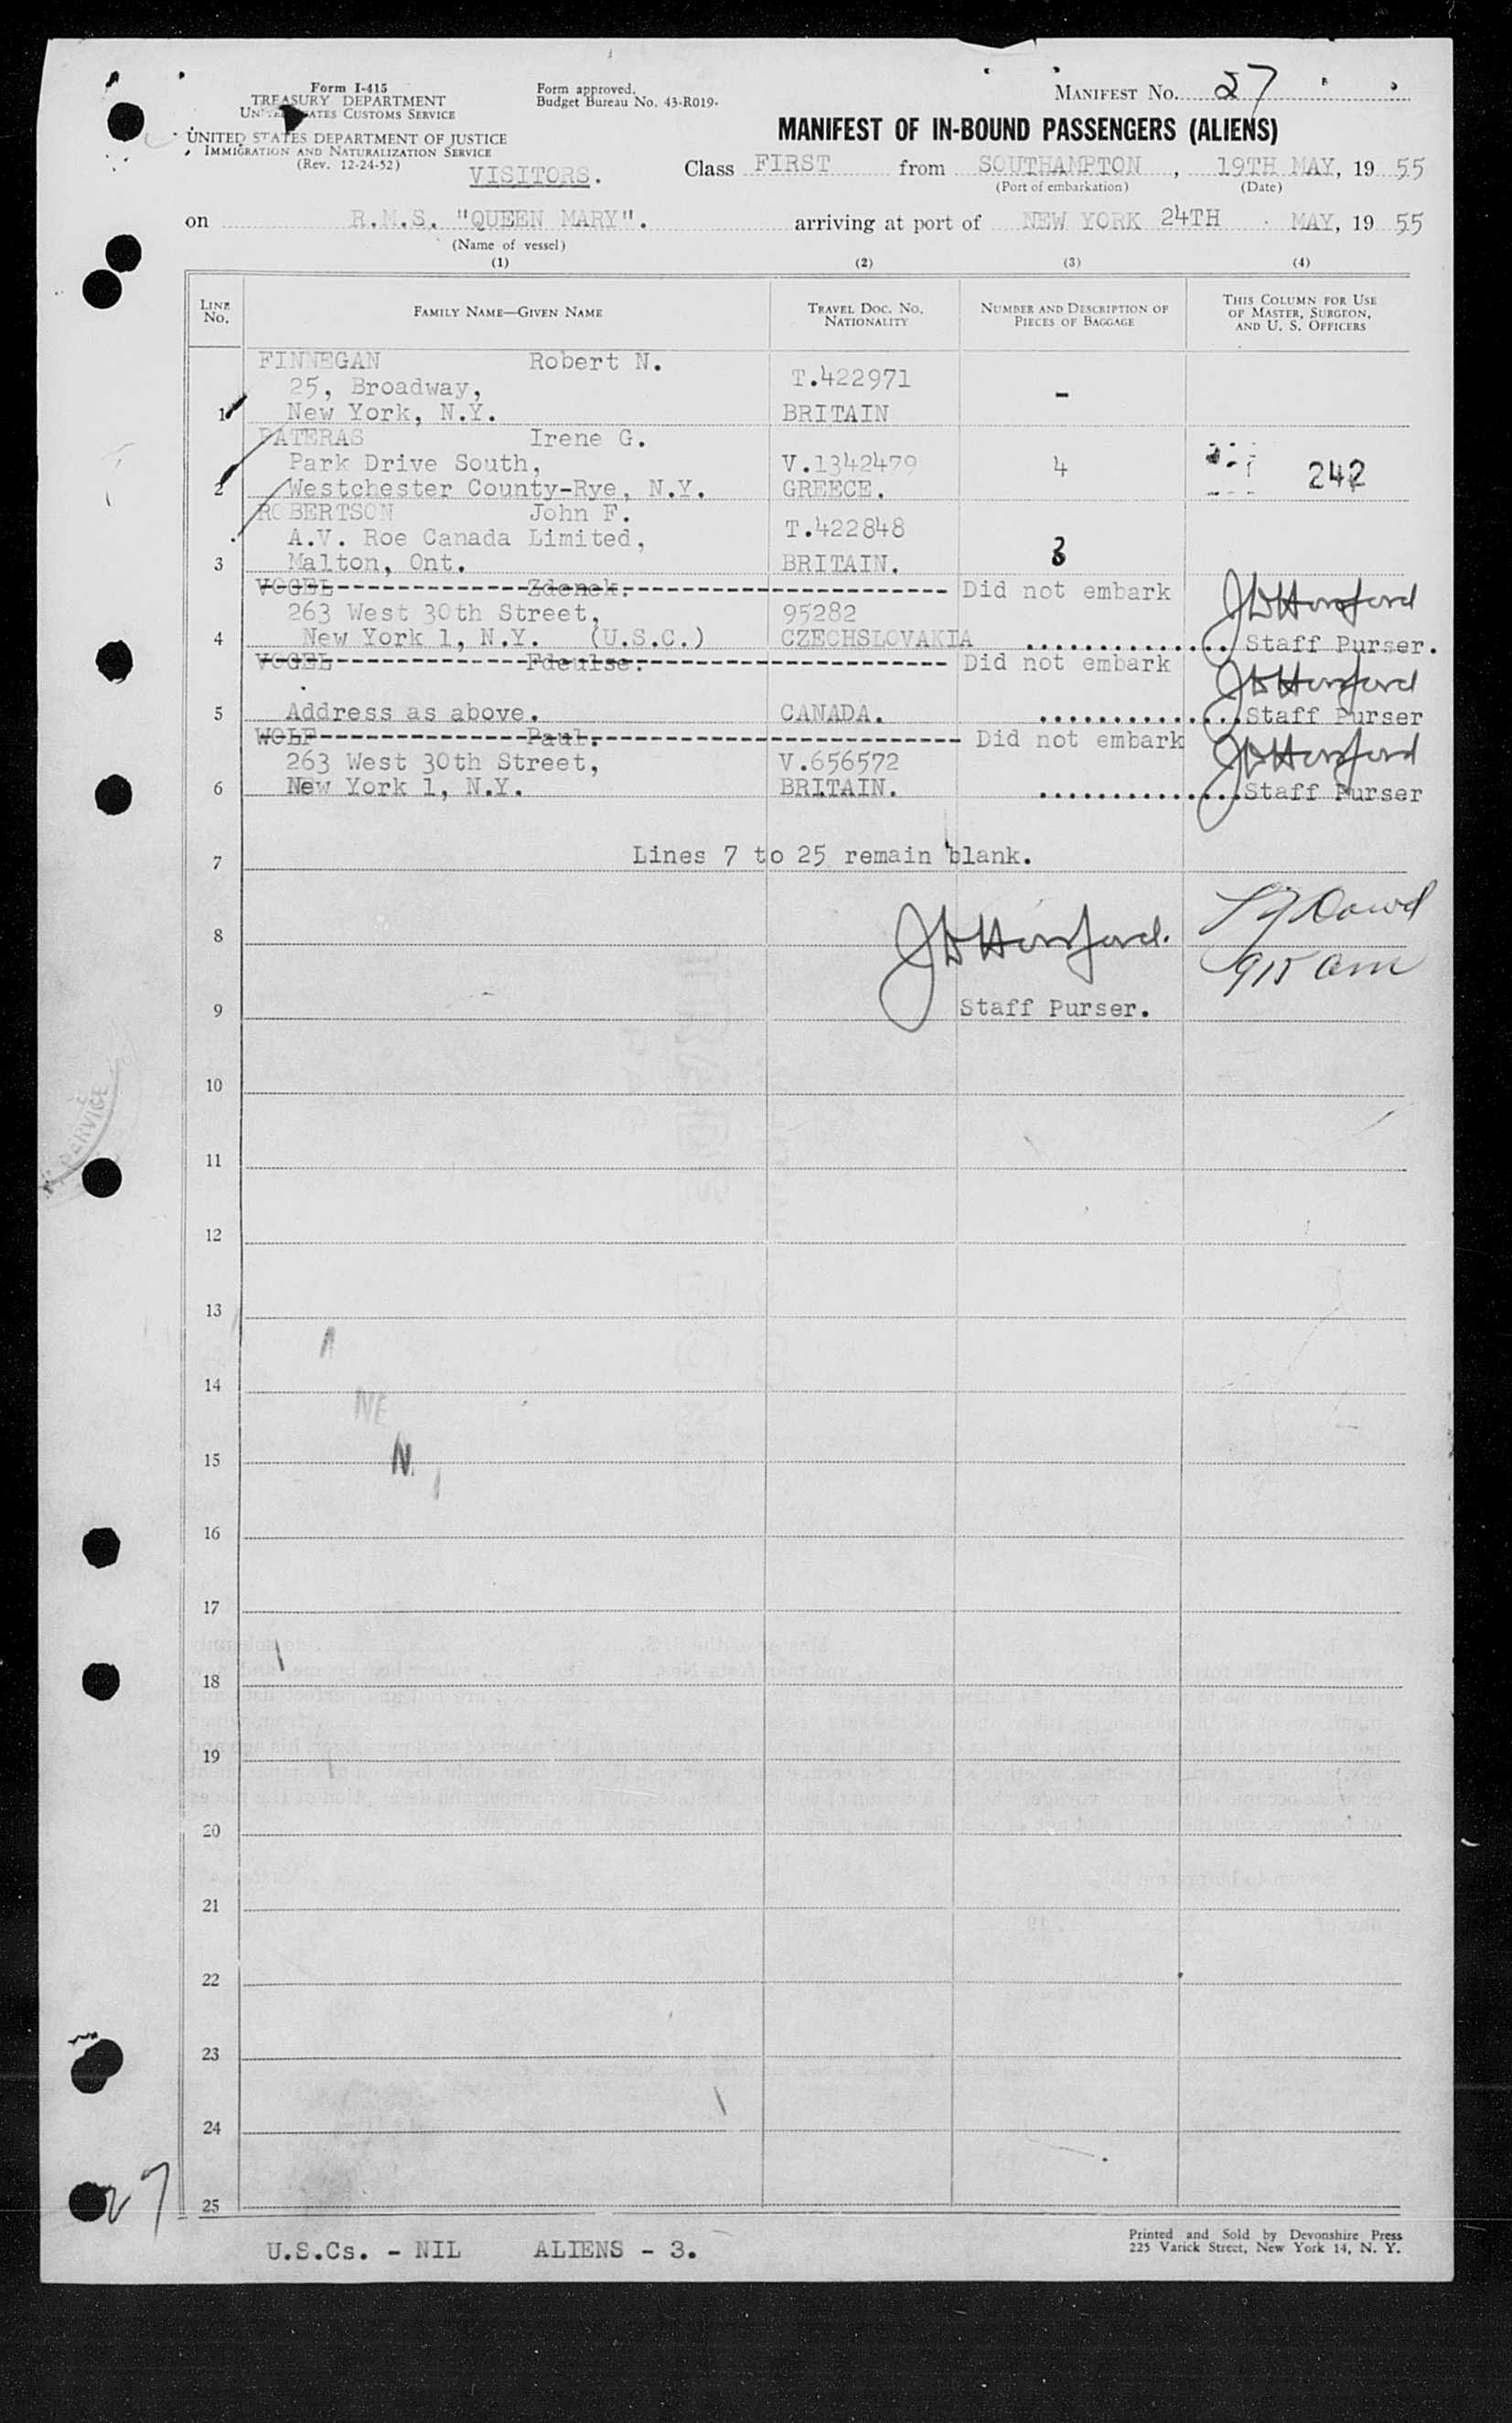 Form I-415
TREASURY DEPARTMENT
UNITED STATES CUSTOMS SERVICE
UNITED STATES DEPARTMENT OF JUSTICE
IMMIGRATION AND NATURALIZATION SERVICE
(Rev. 12-24-52)
Form approved.
Budget Bureau No. 43-R019.
MANIFEST NO. 27
MANIFEST OF IN-BOUND PASSENGERS (ALIENS)
VISITORS.
Class FIRST from SOUTHAMPTON , 19TH MAY, 19 55
(Port of embarkation) (Date)
on R.M.S. "QUEEN MARY". arriving at port of NEW YORK 24TH MAY, 19 55
(Name of vessel)
(1) (2) (3) (4)
LINE NO. FAMILY NAME—GIVEN NAME TRAVEL DOC. NO. NATIONALITY NUMBER AND DESCRIPTION OF PIECES OF BAGGAGE THIS COLUMN FOR USE OF MASTER, SURGEON, AND U. S. OFFICERS
FINNEGAN Robert N.
25, Broadway, T.422971 -
1 New York, N.Y. BRITAIN
PATERAS Irene G.
Park Drive South, V.1342479 4 242
2 Westchester County-Rye, N.Y. GREECE.
ROBERTSON John F.
A.V. Roe Canada Limited, T.422848 3
3 Malton, Ont. BRITAIN.
VOGEL Zdenek. Did not embark
263 West 30th Street, 95282
4 New York 1, N.Y. (U.S.C.) CZECHSLOVAKIA Staff Purser.
VOGEL Did not embark
5 Address as above. CANADA. Staff Purser
WOLF Paul. Did not embark
263 West 30th Street, V.656572
6 New York 1, N.Y. BRITAIN. Staff Purser
7 Lines 7 to 25 remain blank.
8
915 am
9 Staff Purser.
10
11
12
13
14
NE
15
N.
16
17
18
19
20
21
22
23
24
25
27
U.S.Cs. - NIL ALIENS - 3.
Printed and Sold by Devonshire Press
225 Varick Street, New York 14, N. Y.
SERVICE